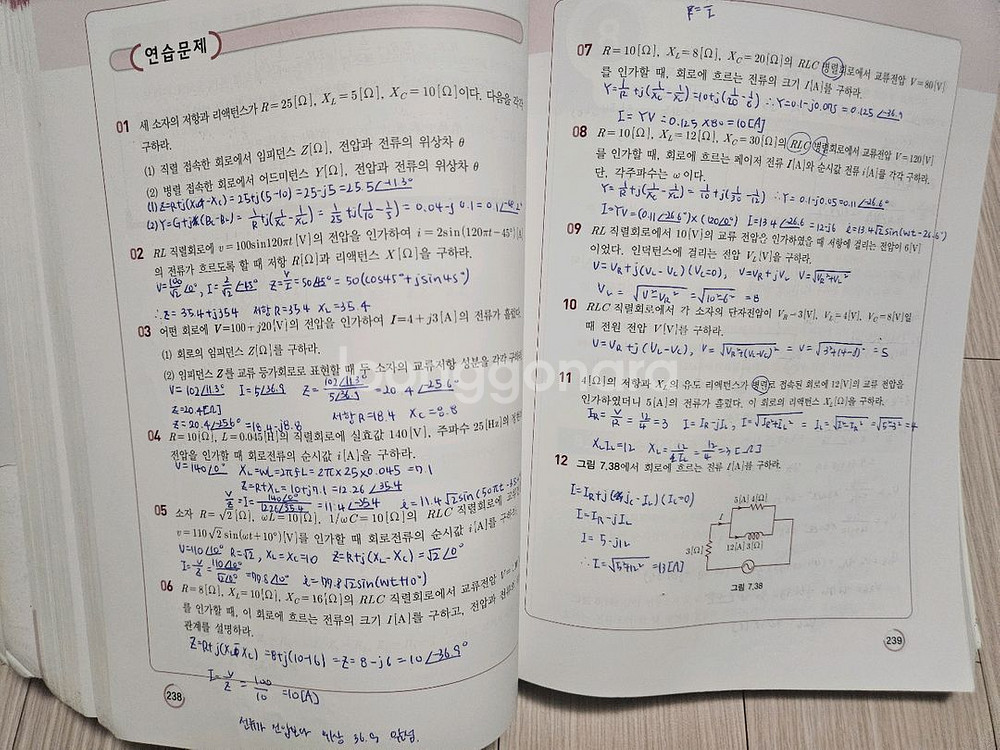 연습문제
01 세 소자의 저항과 리액턴스가 R=25[Ω], X_L=5[Ω], X_C=10[Ω]이다. 다음을 각각
구하라.
(1) 직렬 접속한 회로에서 임피던스 Z[Ω], 전압과 전류의 위상차 θ
(2) 병렬 접속한 회로에서 어드미턴스 Y[Ω], 전압과 전류의 위상차 θ
=25+j(5-10)=25-j5=25.5∠-11.3°
02 RL 직렬회로에 v=100sin120πt[V]의 전압을 인가하여 i=2sin(120πt-45°)[A]
의 전류가 흐르도록 할 때 저항 R[Ω]과 리액턴스 X[Ω]을 구하라.
V=100/√2∠0°, I=2/√2∠-45° Z=V/I=50∠45°=50(cos45°+jsin45°)
∴Z=35.4+j35.4 저항 R=35.4 X_L=35.4
03 어떤 회로에 V=100+j20[V]의 전압을 인가하여 I=4+j3[A]의 전류가 흘렀다.
(1) 회로의 임피던스 Z[Ω]를 구하라.
(2) 임피던스 Z를 교류 등가회로로 표현할 때 두 소자의 교류저항 성분을 각각 구하
V=102∠11.3° I=5∠36.9 Z=102∠11.3°/5∠36.9=20.4∠-25.6°
Z=20.4[Ω]
Z=20.4∠-25.6°=18.4-j8.8 저항 R=18.4 X_C=8.8
04 R=10[Ω], L=0.045[H]의 직렬회로에 실효값 140[V], 주파수 25[Hz]의
전압을 인가할 때 회로전류의 순시값 i[A]를 구하라.
V=140∠0° X_L=wL=2πfL=2π×25×0.045=7.1
Z=R+X_L=10+j7.1=12.26∠35.4
V/Z=I=140∠0°/12.26∠35.4=11.4∠-35.4 i=11.4√2sin(50πt-35.4
05 소자 R=√2[Ω], ωL=10[Ω], 1/ωC=10[Ω]의 RLC 직렬회로에
v=110√2sin(ωt+10°)[V]를 인가할 때 회로전류의 순시값 i[A]를 구하라.
V=110∠10° R=√2, X_L=X_C=10 Z=R+j(X_L-X_C)=√2∠0°
I=V/Z=110∠10°/√2∠0°=77.8∠10° i=77.8√2sin(wt+10°)
06 R=8[Ω], X_L=10[Ω], X_C=16[Ω]의 RLC 직렬회로에서 교류전압
를 인가할 때, 이 회로에 흐르는 전류의 크기 I[A]를 구하고, 전압과
관계를 설명하라.
=8+j(10-16)=Z=8-j6=10∠-36.9°
I=V/Z=100/10=10[A]
238
07 R=10[Ω], X_L=8[Ω], X_C=20[Ω]의 RLC 병렬회로에서 교류전압 V=80[V]
를 인가할 때, 회로에 흐르는 전류의 크기 I[A]를 구하라.
I=YV=0.125×80=10[A]
08 R=10[Ω], X_L=12[Ω], X_C=30[Ω]의 RLC 병렬회로에서 교류전압 V=120[V]
를 인가할 때, 회로에 흐르는 페이저 전류 I[A]와 순시값 전류 i[A]를 각각 구하라.
단, 각주파수는 ω이다.
Y=1/R+j(1/X_C-1/X_L)=1/10+j(1/30-1/12) ∴Y=0.1-j0.05=0.11∠-26.6°
I=YV=(0.11∠-26.6°)×(120∠0°) I=13.4∠-26.6=12-j6 i=13.4√2sin(wt-26.6°)
09 RL 직렬회로에서 10[V]의 교류 전압을 인가하였을 때 저항에 걸리는 전압이 6[V]
이었다. 인덕턴스에 걸리는 전압 V_L[V]을 구하라.
V=V_R+j(V_L-V_C)(V_C=0), V=V_R+jV_L V=√V_R²+V_L²
V_L=√V²-V_R²=√10²-6²=8
10 RLC 직렬회로에서 각 소자의 단자전압이 V_R=3[V], V_L=4[V], V_C=8[V]일
때 전원 전압 V[V]를 구하라.
V=V_R+j(V_L-V_C), V=√V_R²+(V_L-V_C)²=V=√3²+(4-8)²=5
11 4[Ω]의 저항과 X_L의 유도 리액턴스가 병렬로 접속된 회로에 12[V]의 교류 전압을
인가하였더니 5[A]의 전류가 흘렀다. 이 회로의 리액턴스 X_L[Ω]을 구하라.
I_R=V/R=12/4=3 I=I_R-jI_L, I=√I_R²+I_L²=I_L=√I²-I_R²=√5²-3²=4
X_L I_L=12 X_L=12/I_L=12/4=3[Ω]
12 그림 7.38에서 회로에 흐르는 전류 I[A]를 구하라.
I=I_R-jI_L
I=5-j12
∴I=√5²+12²=13[A]
5[A] 4[Ω]
I
12[A] 3[Ω]
3[Ω]
그림 7.38
239